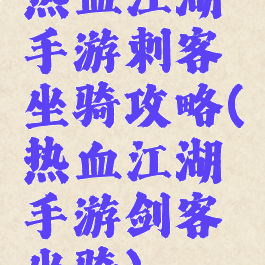 热血江湖
手游刺客
坐骑攻略(
热血江湖
手游剑客
坐骑)